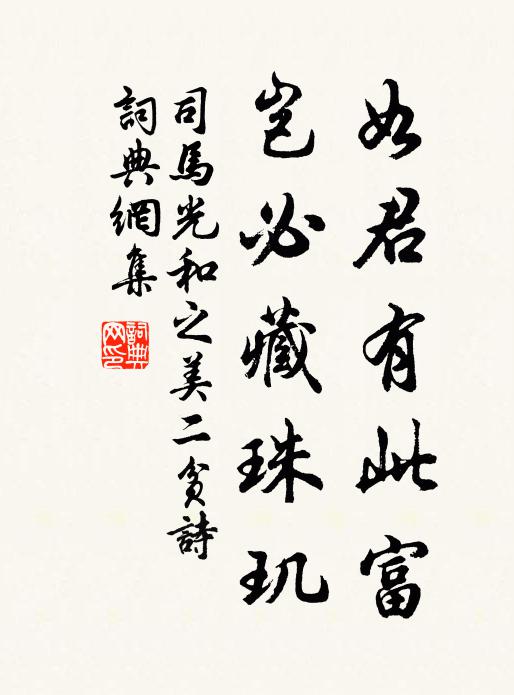 如君有此富
豈必藏珠玑
司馬光和之美二貧詩
詞典網集
詞典网印